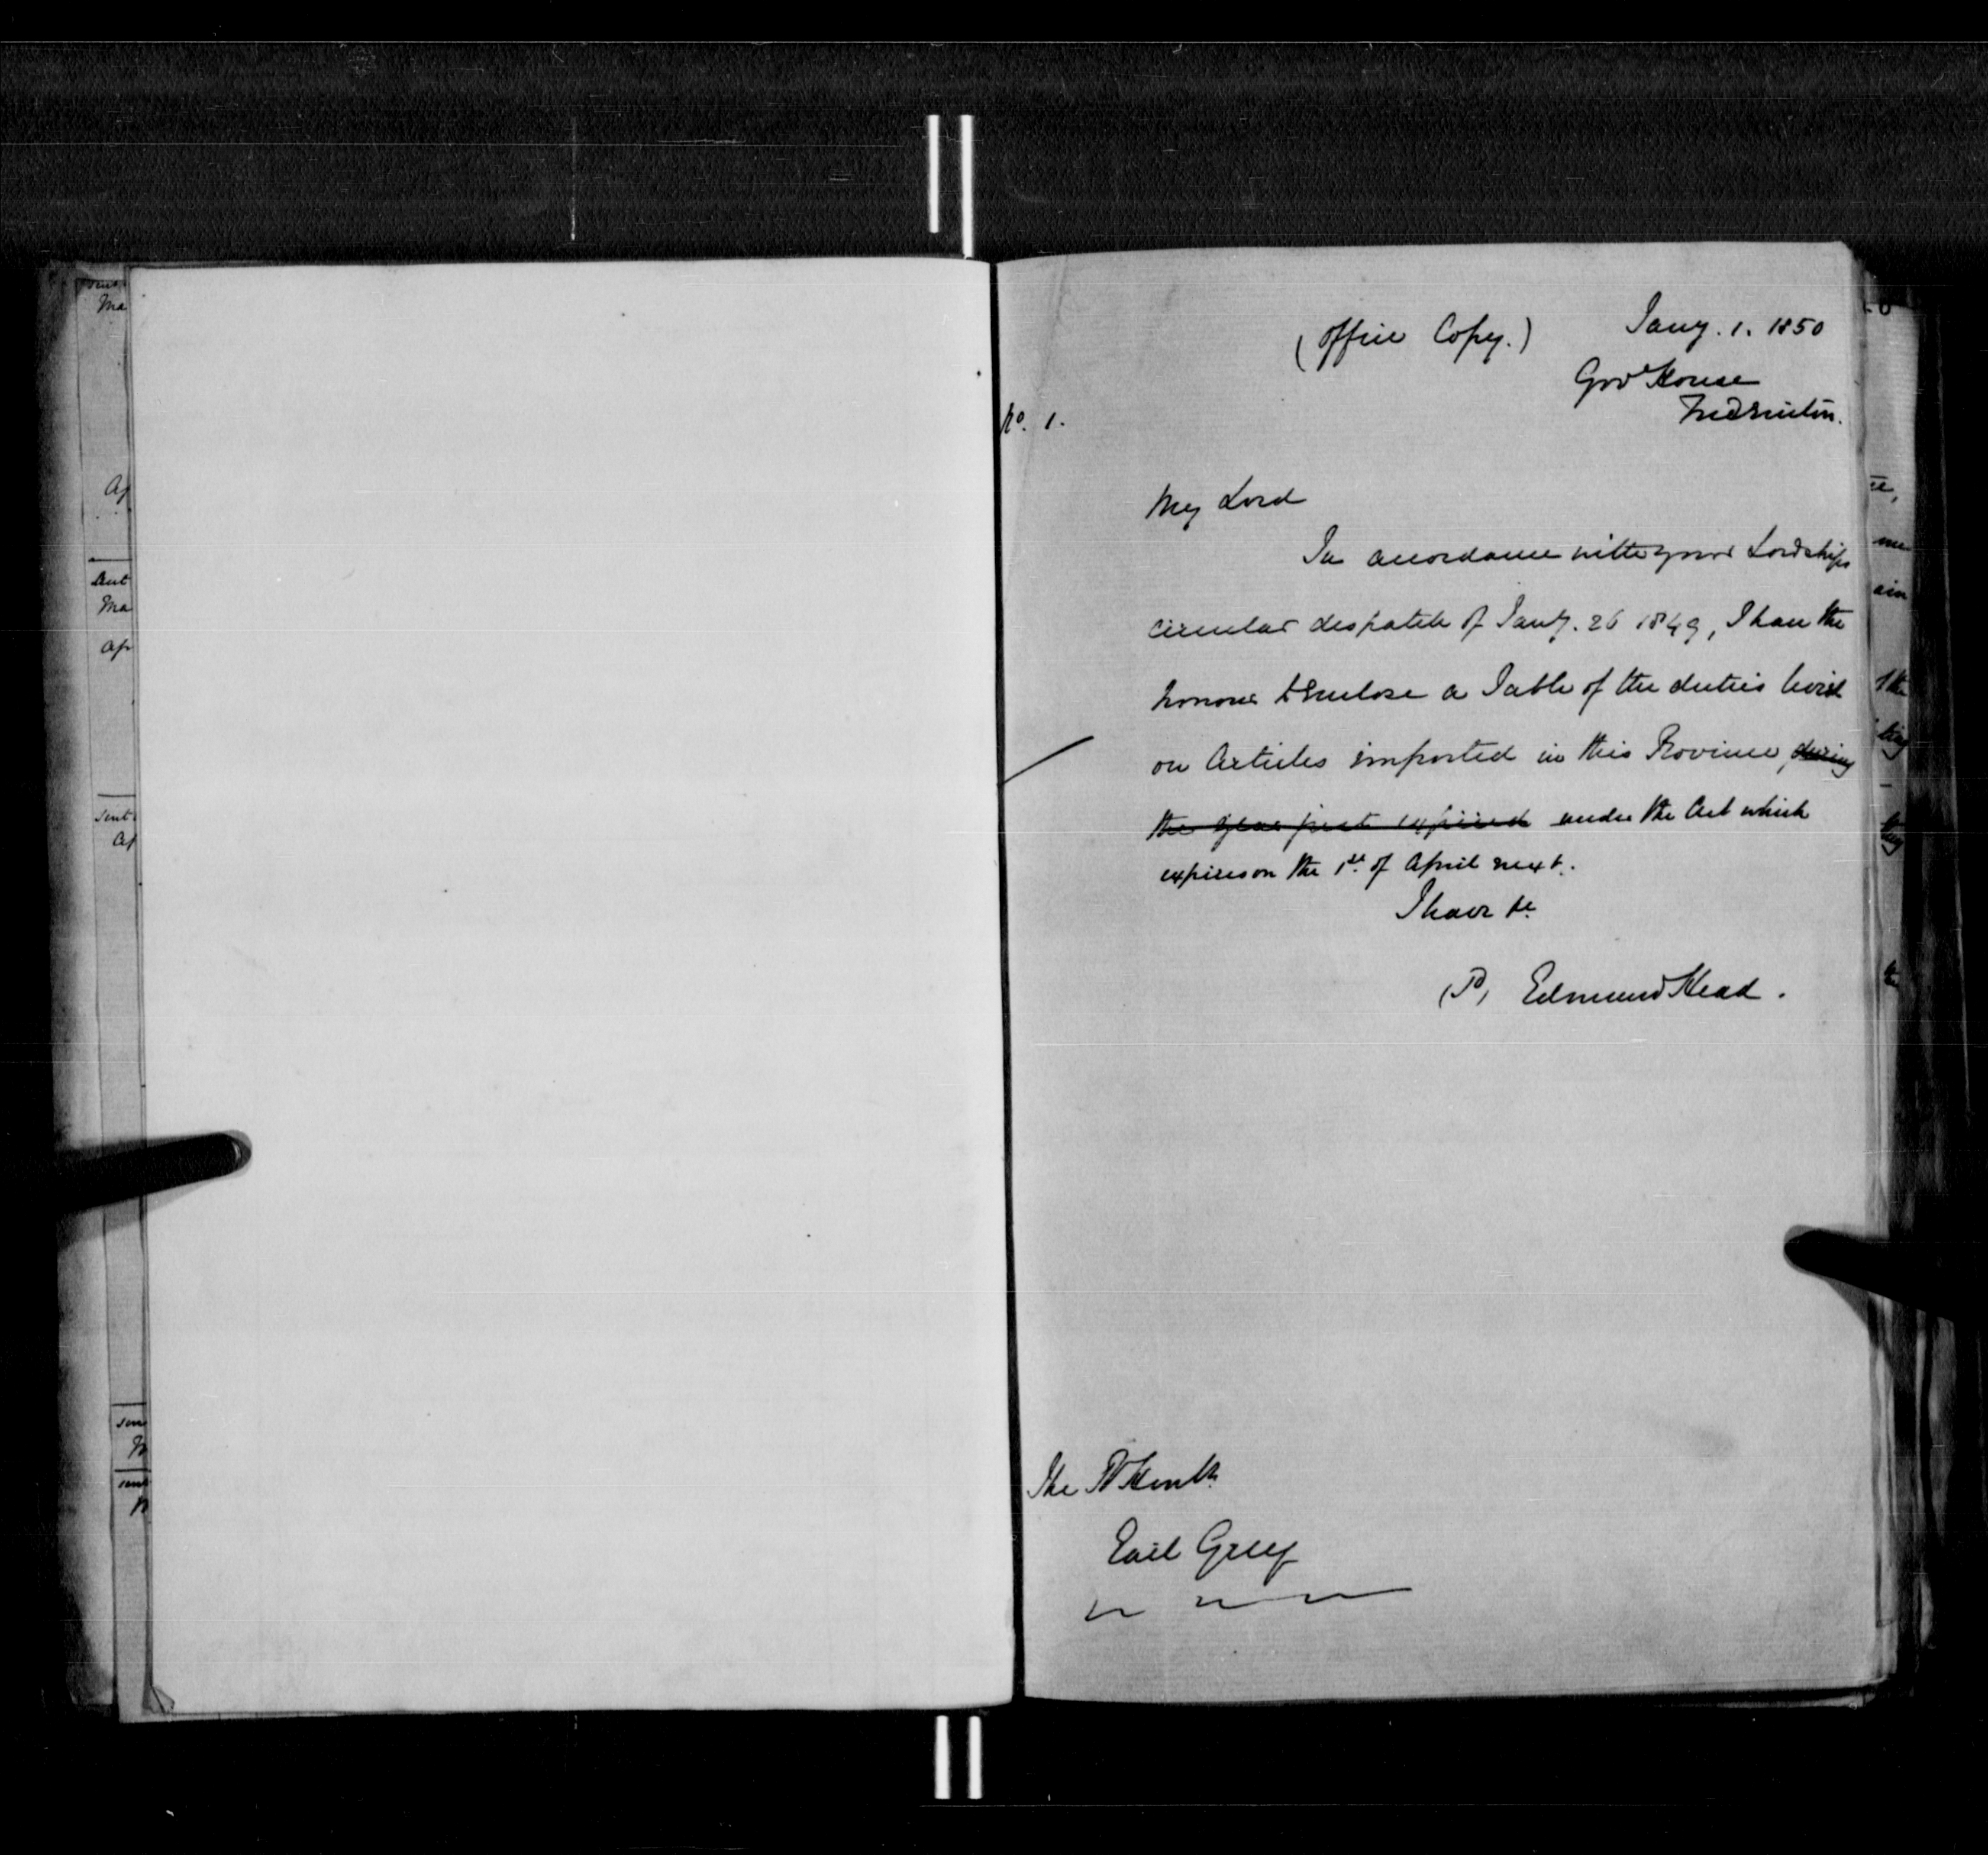 (Office Copy.) Jany. 1. 1850
Govt House
Fredericton.
No. 1.
My Lord
In accordance with your Lordships
circular despatch of Jany. 26 1849, I have the
honour to enclose a Table of the duties levied
on Articles imported in this Province, during
the year just expired under the Act which
expires on the 1st. of April next.
I have &c
(Sd) Edmund Head.
The Rt Honble
Earl Grey